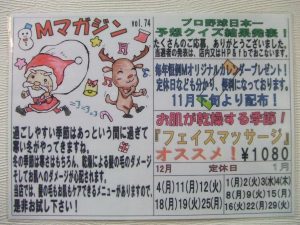 Mマガジン vol.74
過ごしやすい季節はあっという間に過ぎて
寒い冬がやってきますね。
冬の季節は寒さはもちろん、乾燥による髪の毛のダメージ
そしてお肌へのダメージが心配されます。
当店では、髪の毛もお肌もケアできるメニューがありますので、
是非お試し下さい!
プロ野球日本一
予想クイズ結果発表!
たくさんのご応募、ありがとうございました。
当選者の発表は、店内又はHP&fbでおこないます。
毎年恒例Mオリジナルカレンダープレゼント!
定休日なども分かり、便利になっております。
11月下旬より配布!
お肌が乾燥する季節!
『フェイスマッサージ』
オススメ!¥1080
12月 定休日 1月
4(月)11(月)12(火)
18(月)19(火)25(月)
1(月)2(火)3(水)4(木)
8(月)9(火)15(月)
16(火)22(月)29(月)